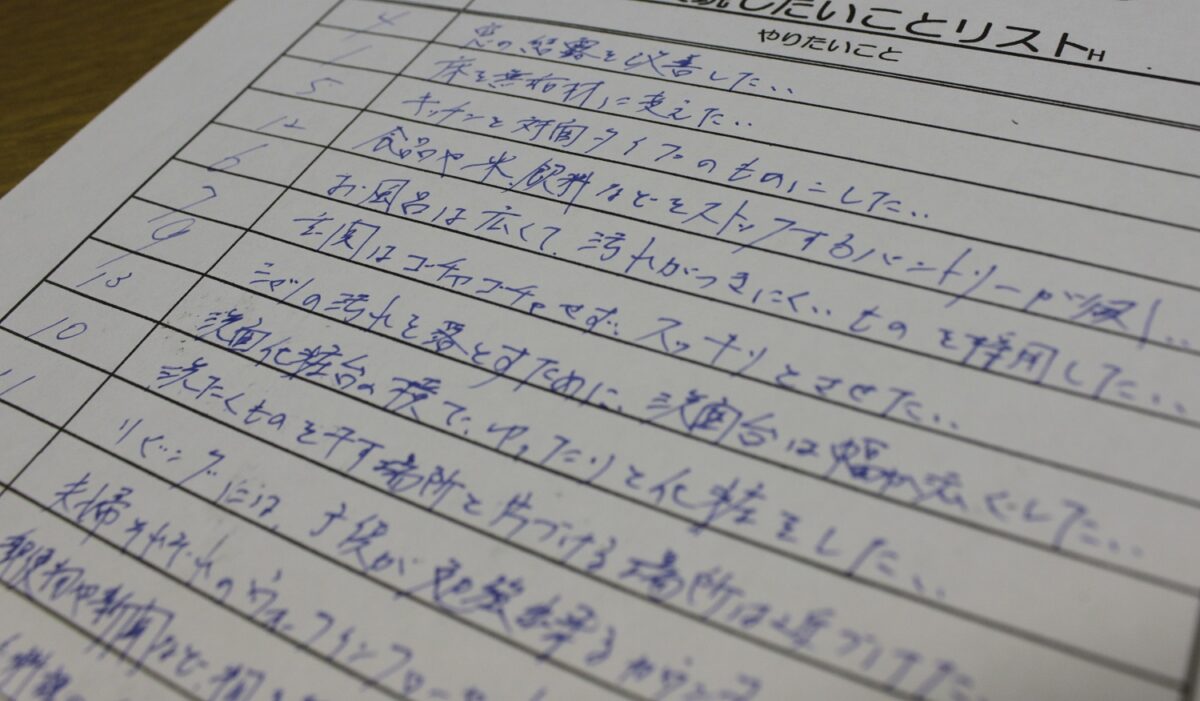 したいことリストH
やりたいこと
4 窓の結露を改善したい
1 床を無垢材に変えたい
5 キッチンを対面タイプのものにしたい
12 食品や米、飲料などをストックするパントリーが欲しい
6 お風呂は広くて、汚れがつきにくいものを採用したい
7 玄関はゴチャゴチャせず、スッキリとさせたい
9 シャツの汚れを落とすために、洗面台は幅が広くしたい
13 洗面化粧台の横で、ゆったりと化粧をしたい
10 洗たくものを干す場所と片づける場所は近づけた
11 リビングには、子供が勉強出来るカウンタ
夫婦それぞれのウォークインクローゼ
郵便物や新聞など、